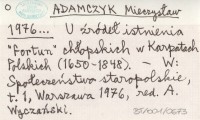 O ADAMCZYK Mieczysław
1976... U źródeł istnienia
"Fortun" chłopskich w Karpatach
Polskich (1650-1848). – W:
Społeczeństwo staropolskie,
t. 1, Warszawa 1976, red. A.
Wyczański.